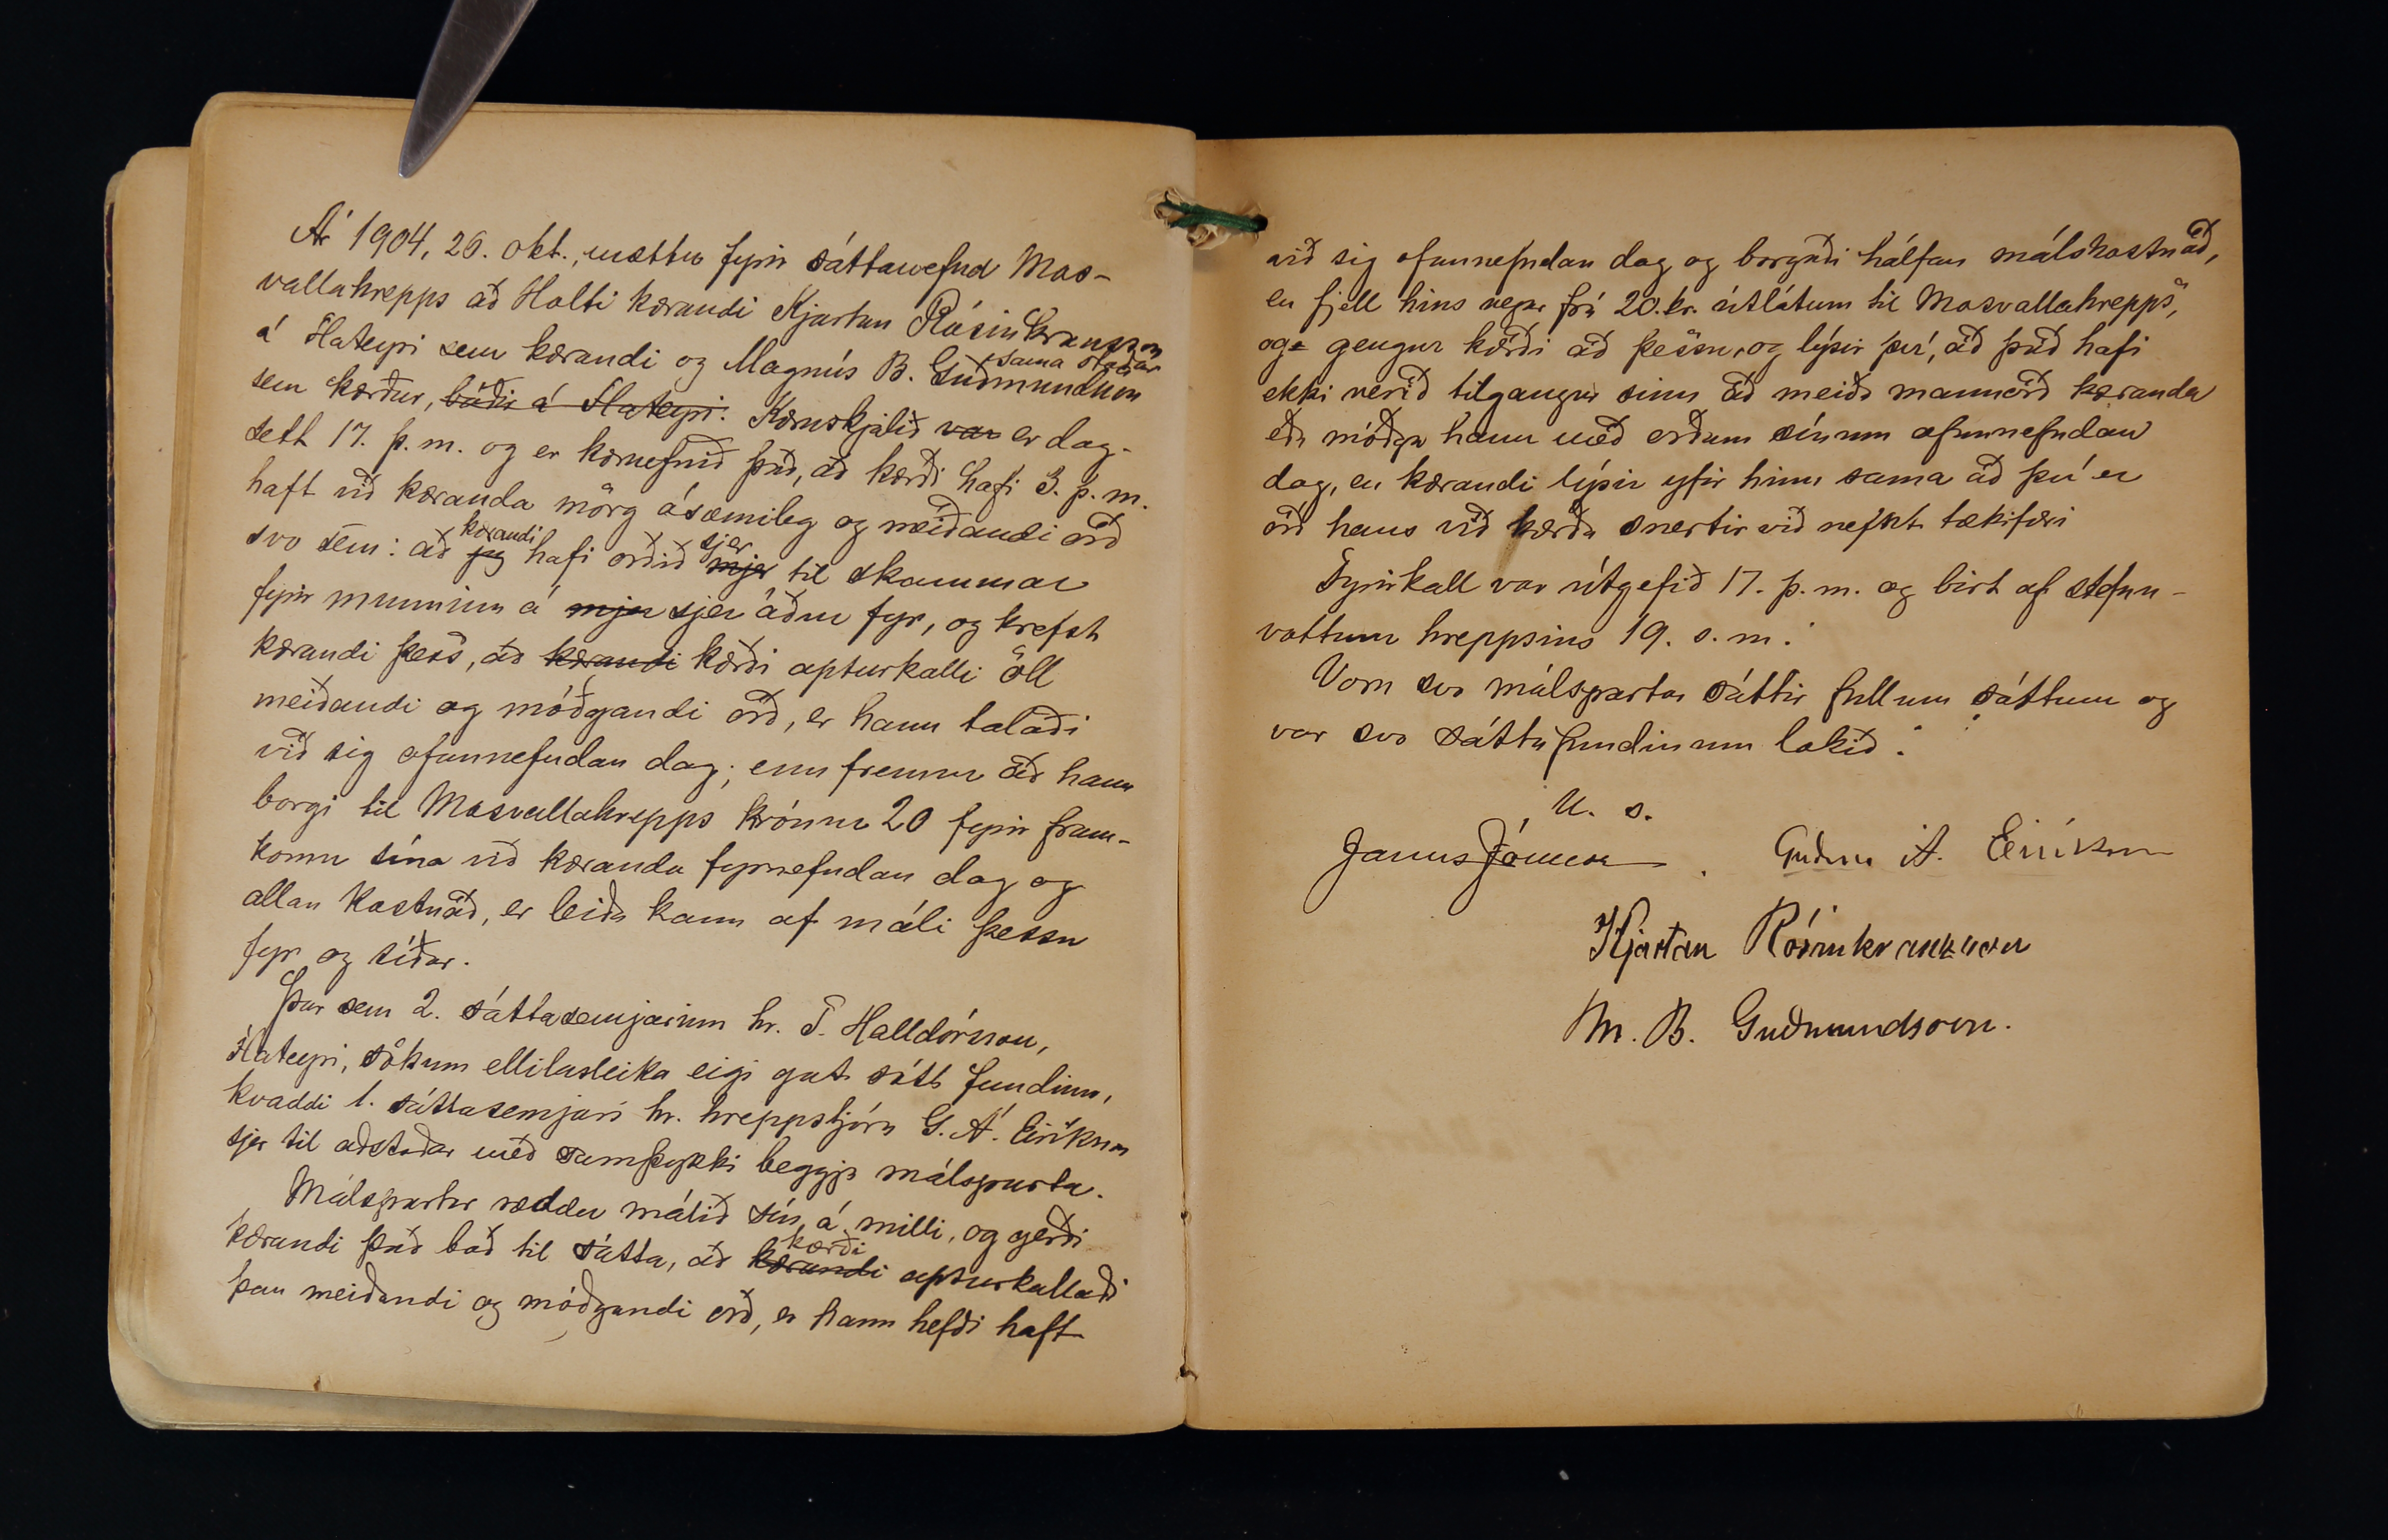 Ár 1904, 26. okt., mættu fyrir sáttanefnd Mos-
vallahrepps að Holti kærandi Kjartan Rósinkransson
á Flateyri sem kærandi og Magnús B. Guðmundsson sama staðar
sem kærður, báðir á Flateyri. Kæruskjalið var er dag-
sett 17. þ. m. og er kæruefnið það, að kærði hafi 3. þ. m.
haft við kæranda mörg ósæmileg og meiðandi orð
svo sem: að jeg kærandi hafi orðið mjer sjer til skammar
fyrir munninn á mjer sjer áður fyr, og krefst
kærandi þess, að kærandi kærði apturkalli öll
meiðandi og móðgandi orð, er hann talaði
við sig ofannefndan dag; enn fremur að hann
borgi til Mosvallahrepps krónur 20 fyrir fram-
komu sína við kæranda fyrnefndan dag og
allan kostnað, er leiða kann af máli þessu
fyr og síðar.
Þar sem 2. sáttasemjarinn hr. T. Halldórsson,
Flateyri, sökum ellilasleika eigi gat sótt fundinn,
kvaddi 1. sáttasemjari hr. hreppstjóra G. Á. Eiríksson
sjer til aðstoðar með samþykki beggja málsparta.
Málspartar ræddu málið sín á milli, og gerði
kærandi það boð til sátta, að kærandi kærði apturkallaði
þau meiðandi og móðgandi orð, er hann hefði haft
við sig ofannefndan dag og borgaði hálfan málskostnað,
en fjell hins vegar frá 20. kr. útlátum til Mosvallahrepps,
og gengur kærði að þessu, og lýsir því, að það hafi
ekki verið tilgangur sinn að meiða mannorð kæranda
eða móðga hann með orðum sínum ofannefndan
dag, en kærandi lýsir yfir hinu sama að því er
orð hans við kærða snertir við nefnt tækifæri
Fyrirkall var útgefið 17. þ. m. og birt af stefnu-
vottum hreppsins 19. s. m.
Voru svo málspartar sáttir fullum sáttum og
var svo sáttafundinum lokið.
U. s.
Janus Jónsson. Guðm. Á. Eiríksson
Kjartan Rósinkranzson
M. B. Guðmundsson.